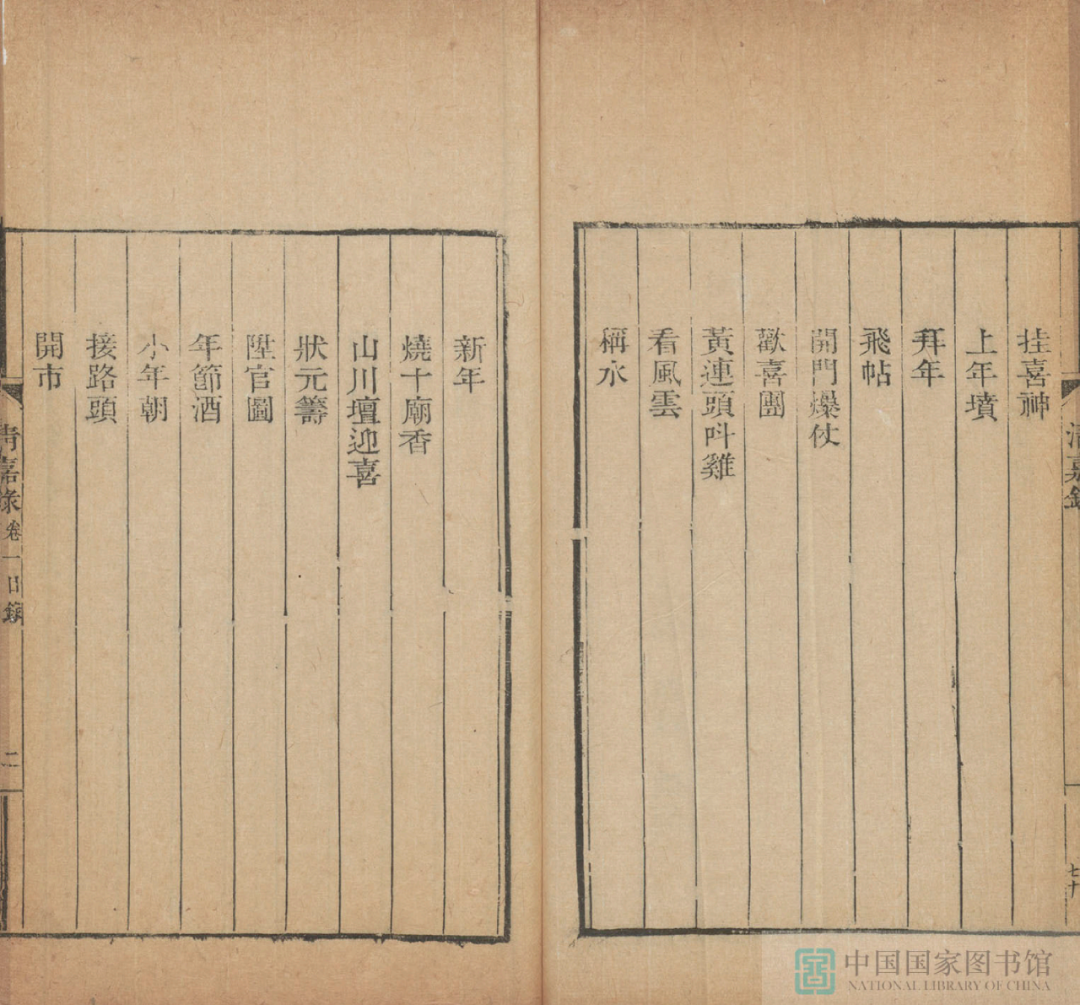 挂喜神
上年墳
拜年
飛帖
開門爆仗
歡喜團
黃連頭叫雞
看風雲
稱水
新年
燒十廟香
山川壇迎喜
狀元籌
陞官圖
年節酒
小年朝
接路頭
開市
清嘉錄
清嘉錄 卷一目錄
二
中国国家图书馆
NATIONAL LIBRARY OF CHINA